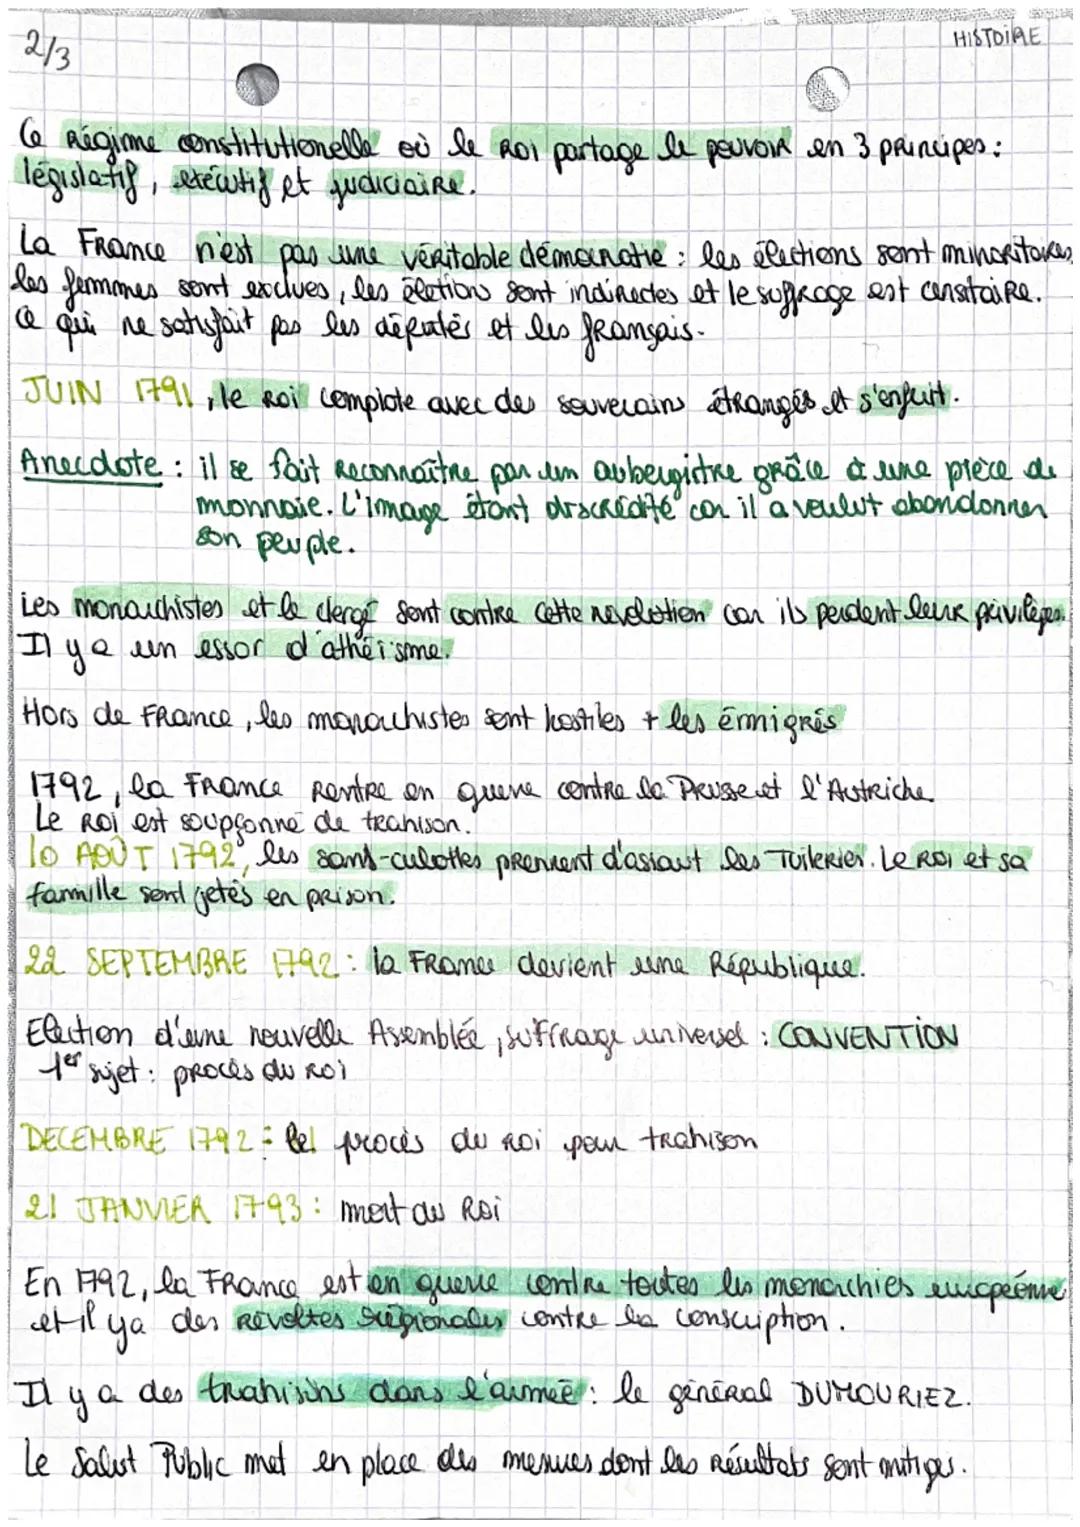 2/3
HISTOIRE
Ce Régime constitutionelle où le ROI partage le pouvoir en 3 principes :
législatif, exécutif et judiciaire.
La France n'est pas une véritable démocratie : les élections sont minoritaires,
les femmes sont exclues, les élections sont indirectes et le suffrage est censitaire.
Ce qui ne satisfait pas les députés et les français.
JUIN 1791, le roi complote avec des souverains étrangés et s'enfuit.
Anecdote : il se fait reconnaître par un aubergistre grâce à une pièce de
monnaie. L'image étant discrédité car il a voulut abandonner
son peuple.
Les monarchistes et le clergé sont contre cette revolution car ils perdent leur privilèges.
Il y a un essor d'athéisme.
Hors de France, les monarchistes sont hostiles + les émigrés
1792, la France rentre en guerre contre la Prusse et l'Autriche.
Le Roi est soupçonné de trahison.
10 AOÛT 1792, les sans-culottes prennent d'assaut les Tuileries. Le ROI et sa
famille sont jetés en prison.
22 SEPTEMBRE 1792 : la France devient une République.
Election d'une nouvelle Assemblée, suffrage universel : CONVENTION
1er sujet : procès du roi
DECEMBRE 1792 : le procès du roi pour trahison
21 JANVIER 1793 : mort du Roi
En 1792, la France est en guerre contre toutes les monarchies européenne
et il y a des révoltes régionales contre la conscription.
Il y a des trahisons dans l'armée : le général DUMOURIEZ.
Le Salut Public met en place des mesures dont les résultats sont mitigés.